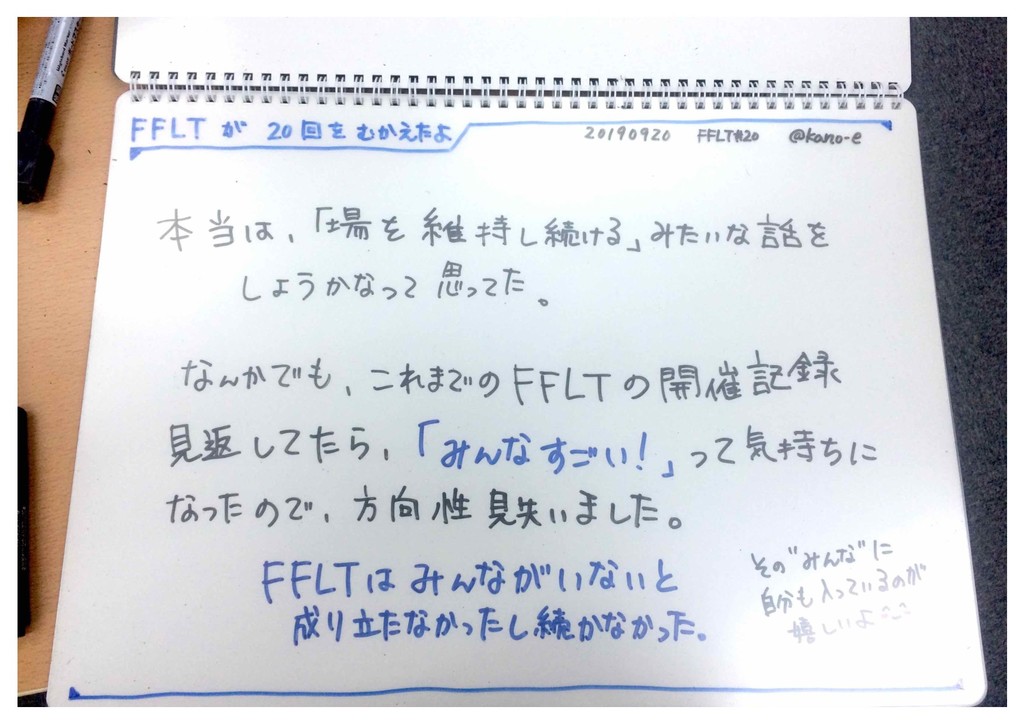 FFLTが 20回をむかえたよ
20190920 FFLT#20 @kano-e
本当は、「場を維持し続ける」みたいな話を
しようかなって思ってた。
なんかでも、これまでのFFLTの開催記録
見返してたら、「みんなすごい!」って気持ちに
なったので、方向性見失いました。
FFLTはみんながいないと
成り立たなかったし続かなかった。
その"みんな"に
自分も入っているのが
嬉しいよ